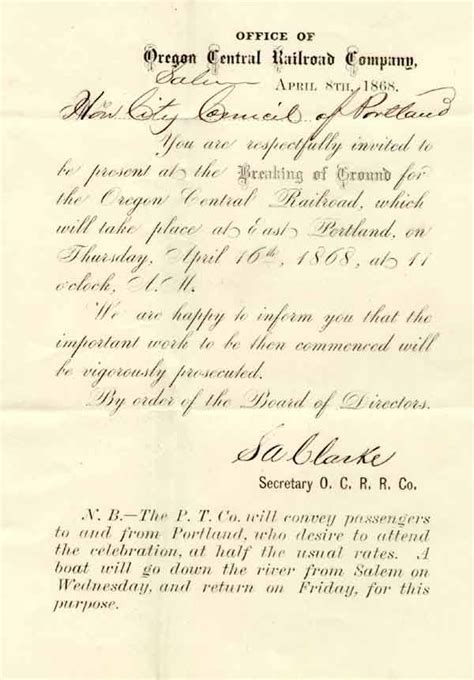 OFFICE OF
Oregon Central Railroad Company,
Salem APRIL 8TH, 1868.
Hon City Council of Portland
You are respectfully invited to
be present at the Breaking of Ground for
the Oregon Central Railroad, which
will take place at East Portland, on
Thursday, April 16th, 1868, at 11
o'clock, A.M.
We are happy to inform you that the
important work to be then commenced will
be vigorously prosecuted.
By order of the Board of Directors.
S A Clarke
Secretary O. C. R. R. Co.
N. B.—The P. T. Co. will convey passengers
to and from Portland, who desire to attend
the celebration, at half the usual rates. A
boat will go down the river from Salem on
Wednesday, and return on Friday, for this
purpose.